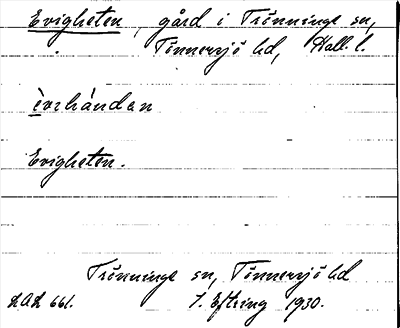 Evigheten, gård i Trönninge sn,
Tönnersjö hd, Hall. l.
èvəhándan
Evigheten.
Trönninge sn, Tönnersjö hd
LAL 661. I. Efring 1930.